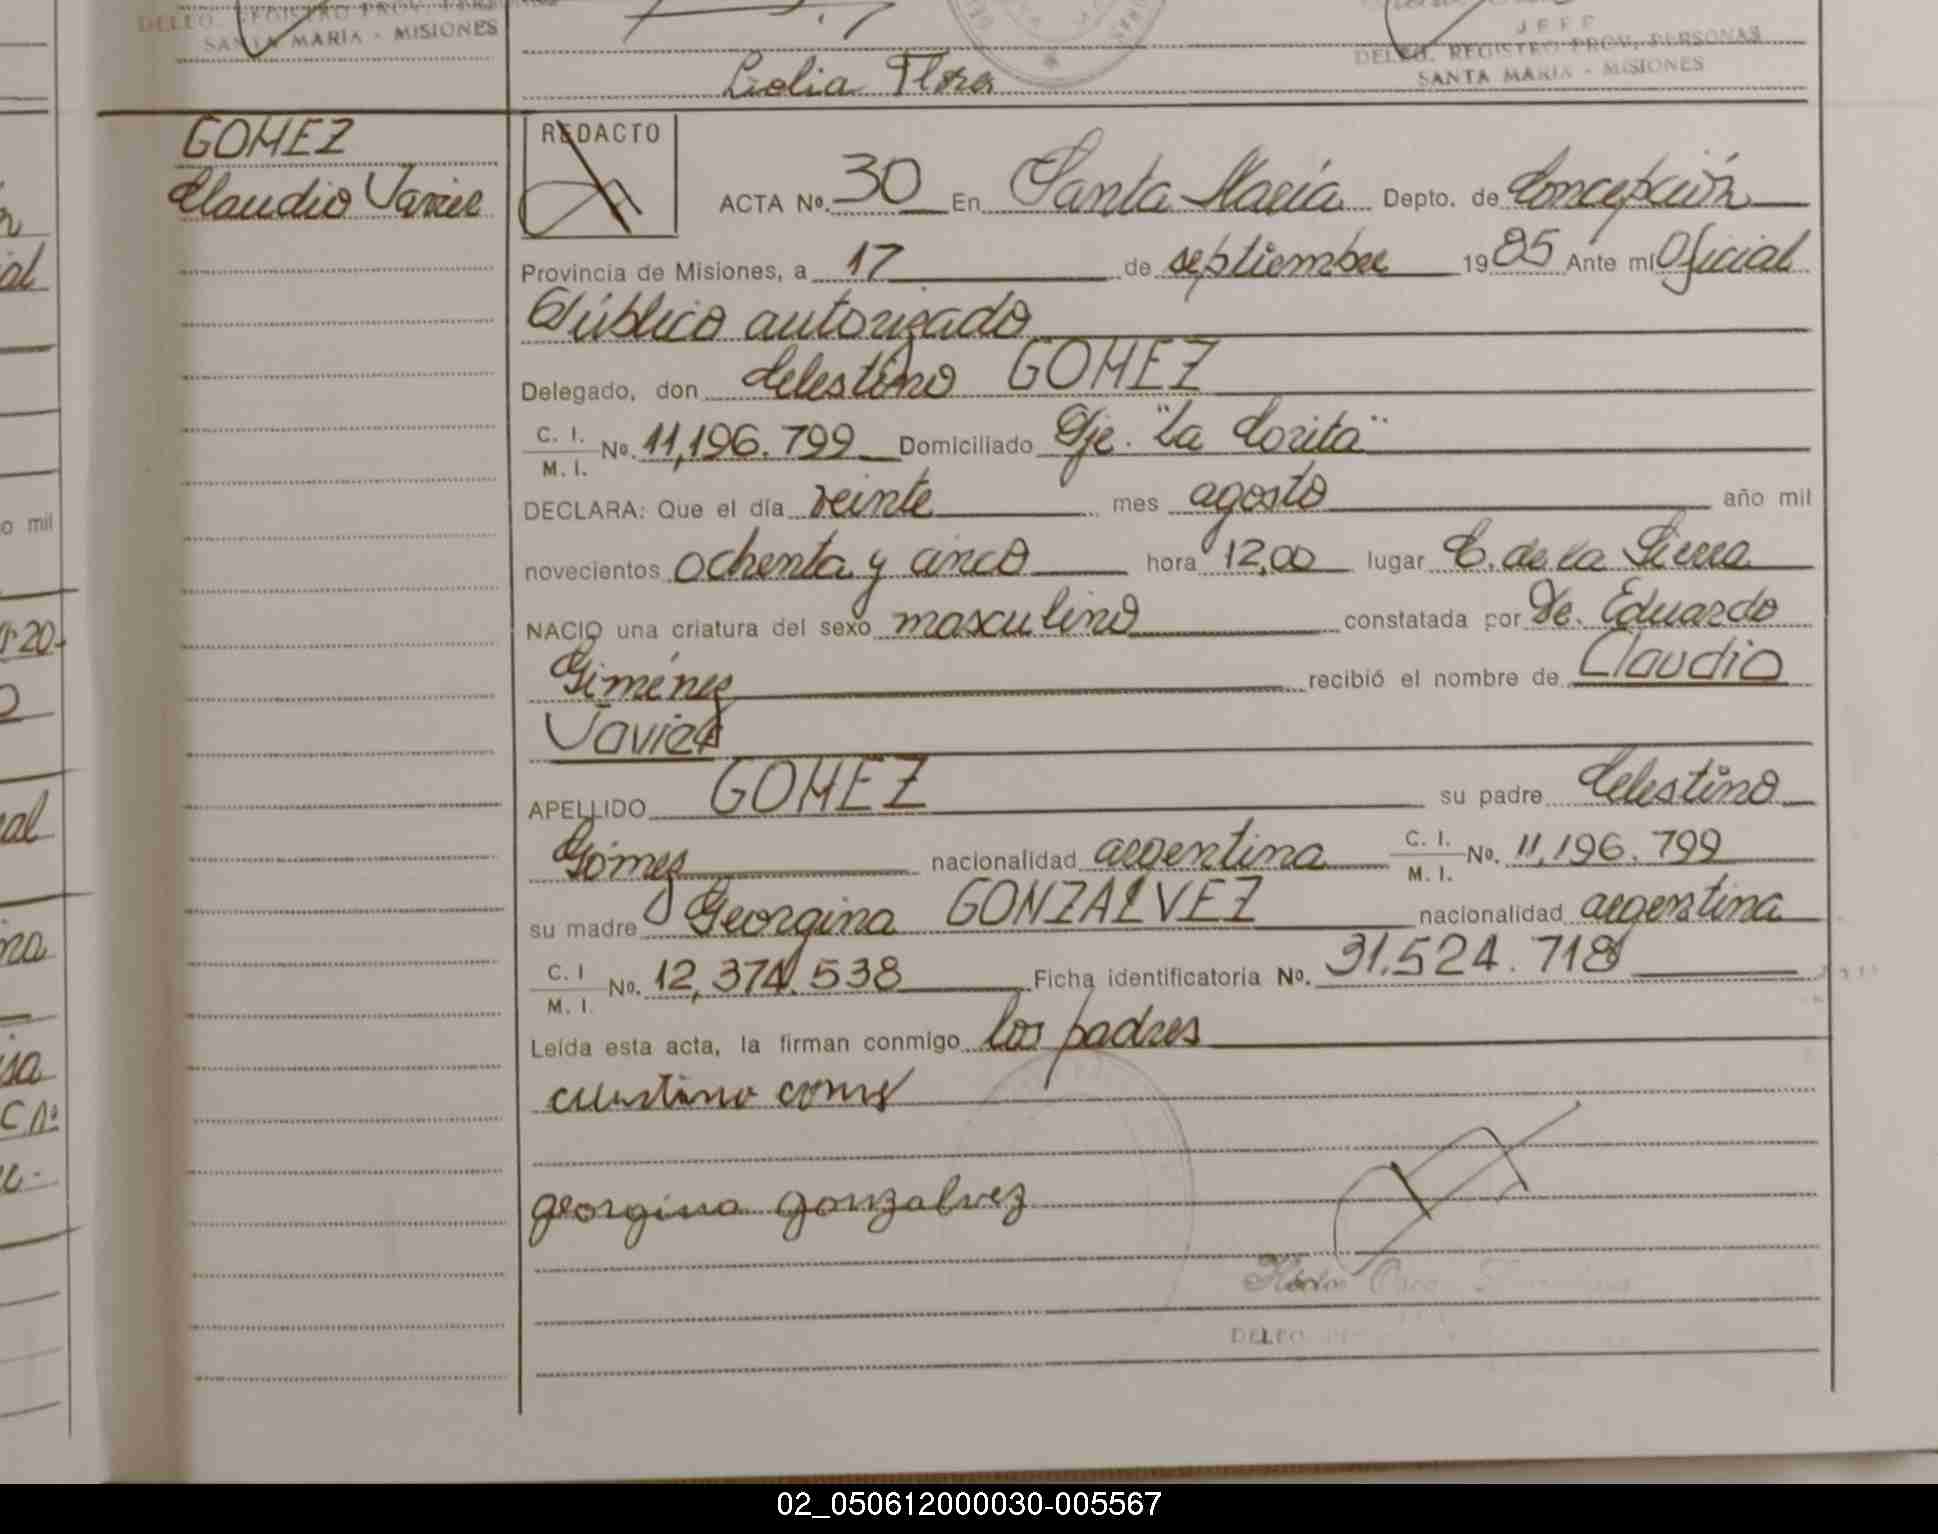 DELEG. REGISTRO PROV. PERSONAS
SANTA MARIA - MISIONES
Lidia Flores
JEFE
DELEG. REGISTRO PROV. PERSONAS
SANTA MARIA - MISIONES
GOMEZ
Claudio Javier
REDACTO
ACTA Nº. 30 En Santa María Depto. de Concepción
Provincia de Misiones, a 17 de septiembre 1985 Ante mí Oficial
Público autorizado
Delegado, don Celestino GOMEZ
C. I.
M. I. Nº. 11,196.799 Domiciliado Pje. "La Corita"
DECLARA: Que el día veinte mes agosto año mil
novecientos ochenta y cinco hora 12,00 lugar C. de la Sierra
NACIO una criatura del sexo masculino constatada por Dr. Eduardo
Giménez recibió el nombre de Claudio
Javier
APELLIDO GOMEZ su padre Celestino
Gómez nacionalidad argentina C. I. M. I. Nº. 11,196.799
su madre Georgina GONZALVEZ nacionalidad argentina
C. I M. I. Nº. 12,374.538 Ficha identificatoria Nº. 31.524.718
Leída esta acta, la firman conmigo los padres
celestino gomez
georgina gonzalvez
DELEG.
o mil
02_050612000030-005567